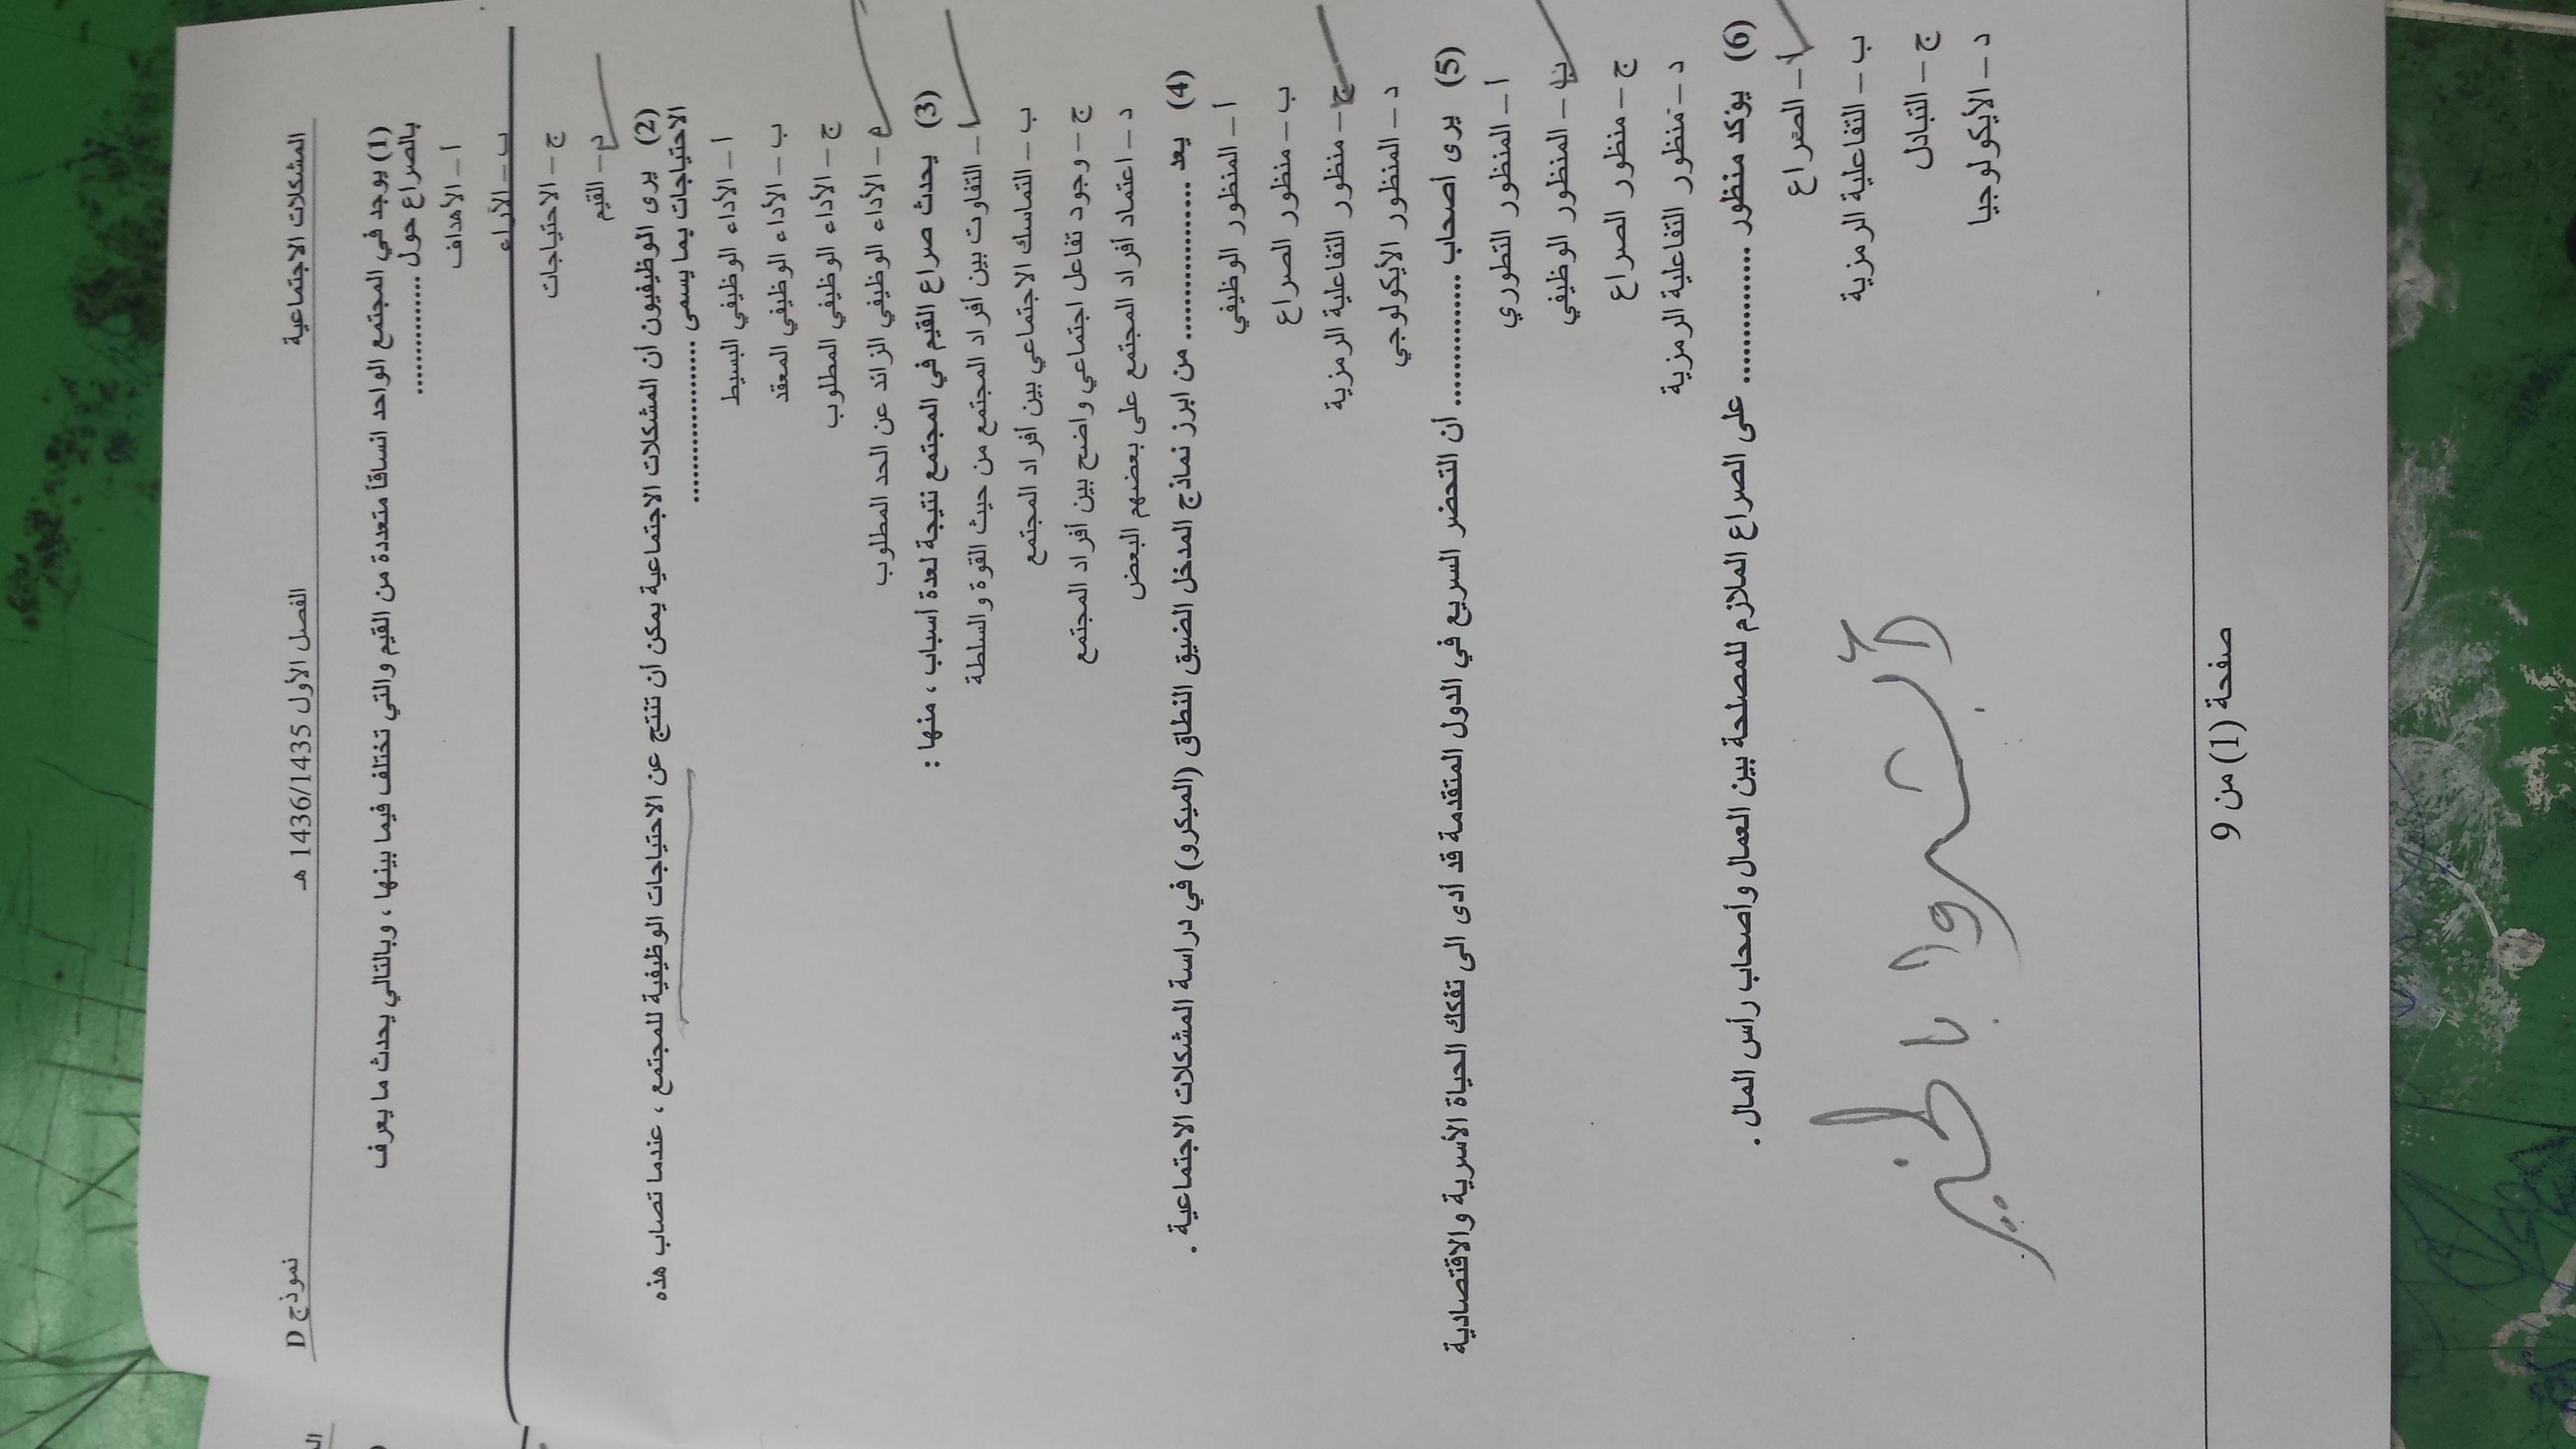 المشكلات الاجتماعية الفصل الأول 1436/1435 هـ نموذج D
(1) يوجد في المجتمع الواحد انساقاً متعددة من القيم والتي تختلف فيما بينها ، وبالتالي يحدث ما يعرف
بالصراع حول ..............
أ – الأهداف
ب – الأراء
ج – الاحتياجات
د – القيم
(2) يرى الوظيفيون أن المشكلات الاجتماعية يمكن أن تنتج عن الاحتياجات الوظيفية للمجتمع ، عندما تصاب هذه
الاحتياجات بما يسمى ..................
أ – الأداء الوظيفي البسيط
ب – الأداء الوظيفي المعقد
ج – الأداء الوظيفي المطلوب
د – الأداء الوظيفي الزائد عن الحد المطلوب
(3) يحدث صراع القيم في المجتمع نتيجة لعدة أسباب ، منها :
أ – التفاوت بين أفراد المجتمع من حيث القوة والسلطة
ب – التماسك الاجتماعي بين أفراد المجتمع
ج – وجود تفاعل اجتماعي واضح بين أفراد المجتمع
د – اعتماد أفراد المجتمع على بعضهم البعض
(4) يعد ................ من ابرز نماذج المدخل الضيق النطاق (الميكرو) في دراسة المشكلات الاجتماعية .
أ – المنظور الوظيفي
ب – منظور الصراع
ج – منظور التفاعلية الرمزية
د – المنظور الأيكولوجي
(5) يرى أصحاب .............. أن التحضر السريع في الدول المتقدمة قد أدى الى تفكك الحياة الأسرية والاقتصادية
أ – المنظور التطوري
ب – المنظور الوظيفي
ج – منظور الصراع
د – منظور التفاعلية الرمزية
(6) يؤكد منظور .............. على الصراع الملازم للمصلحة بين العمال وأصحاب رأس المال .
أ – الصراع
ب – التفاعلية الرمزية
ج – التبادل
د – الأيكولوجيا
أبشروا بالخير
صفحة (1) من 9